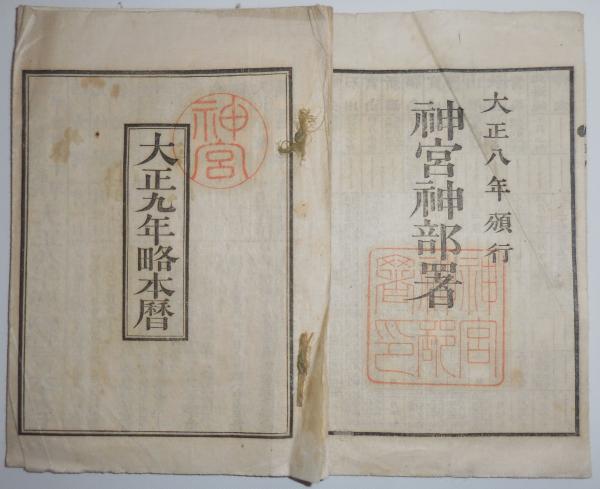 大正八年頒行
神宮神部署
神宮神部署之印
神宮
大正九年略本暦